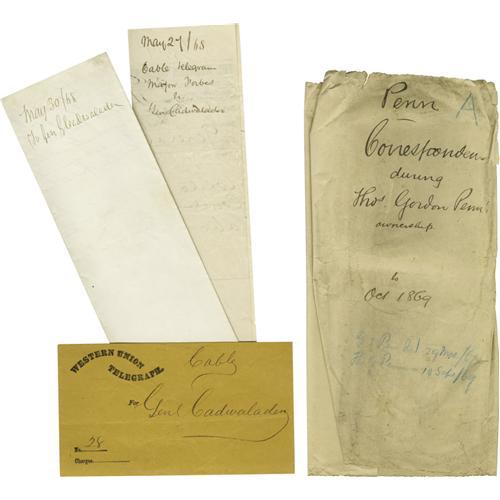 May 30/68
Genl Cadwalader
May 27/68
Cable telegram
Major Forbes
to
Genl Cadwalader
WESTERN UNION
TELEGRAPH.
Cable
For Genl Cadwalader
No. 28
Charges
Penn A
Correspondence
during
Thos Gordon Penn's
ownership
to
Oct 1869